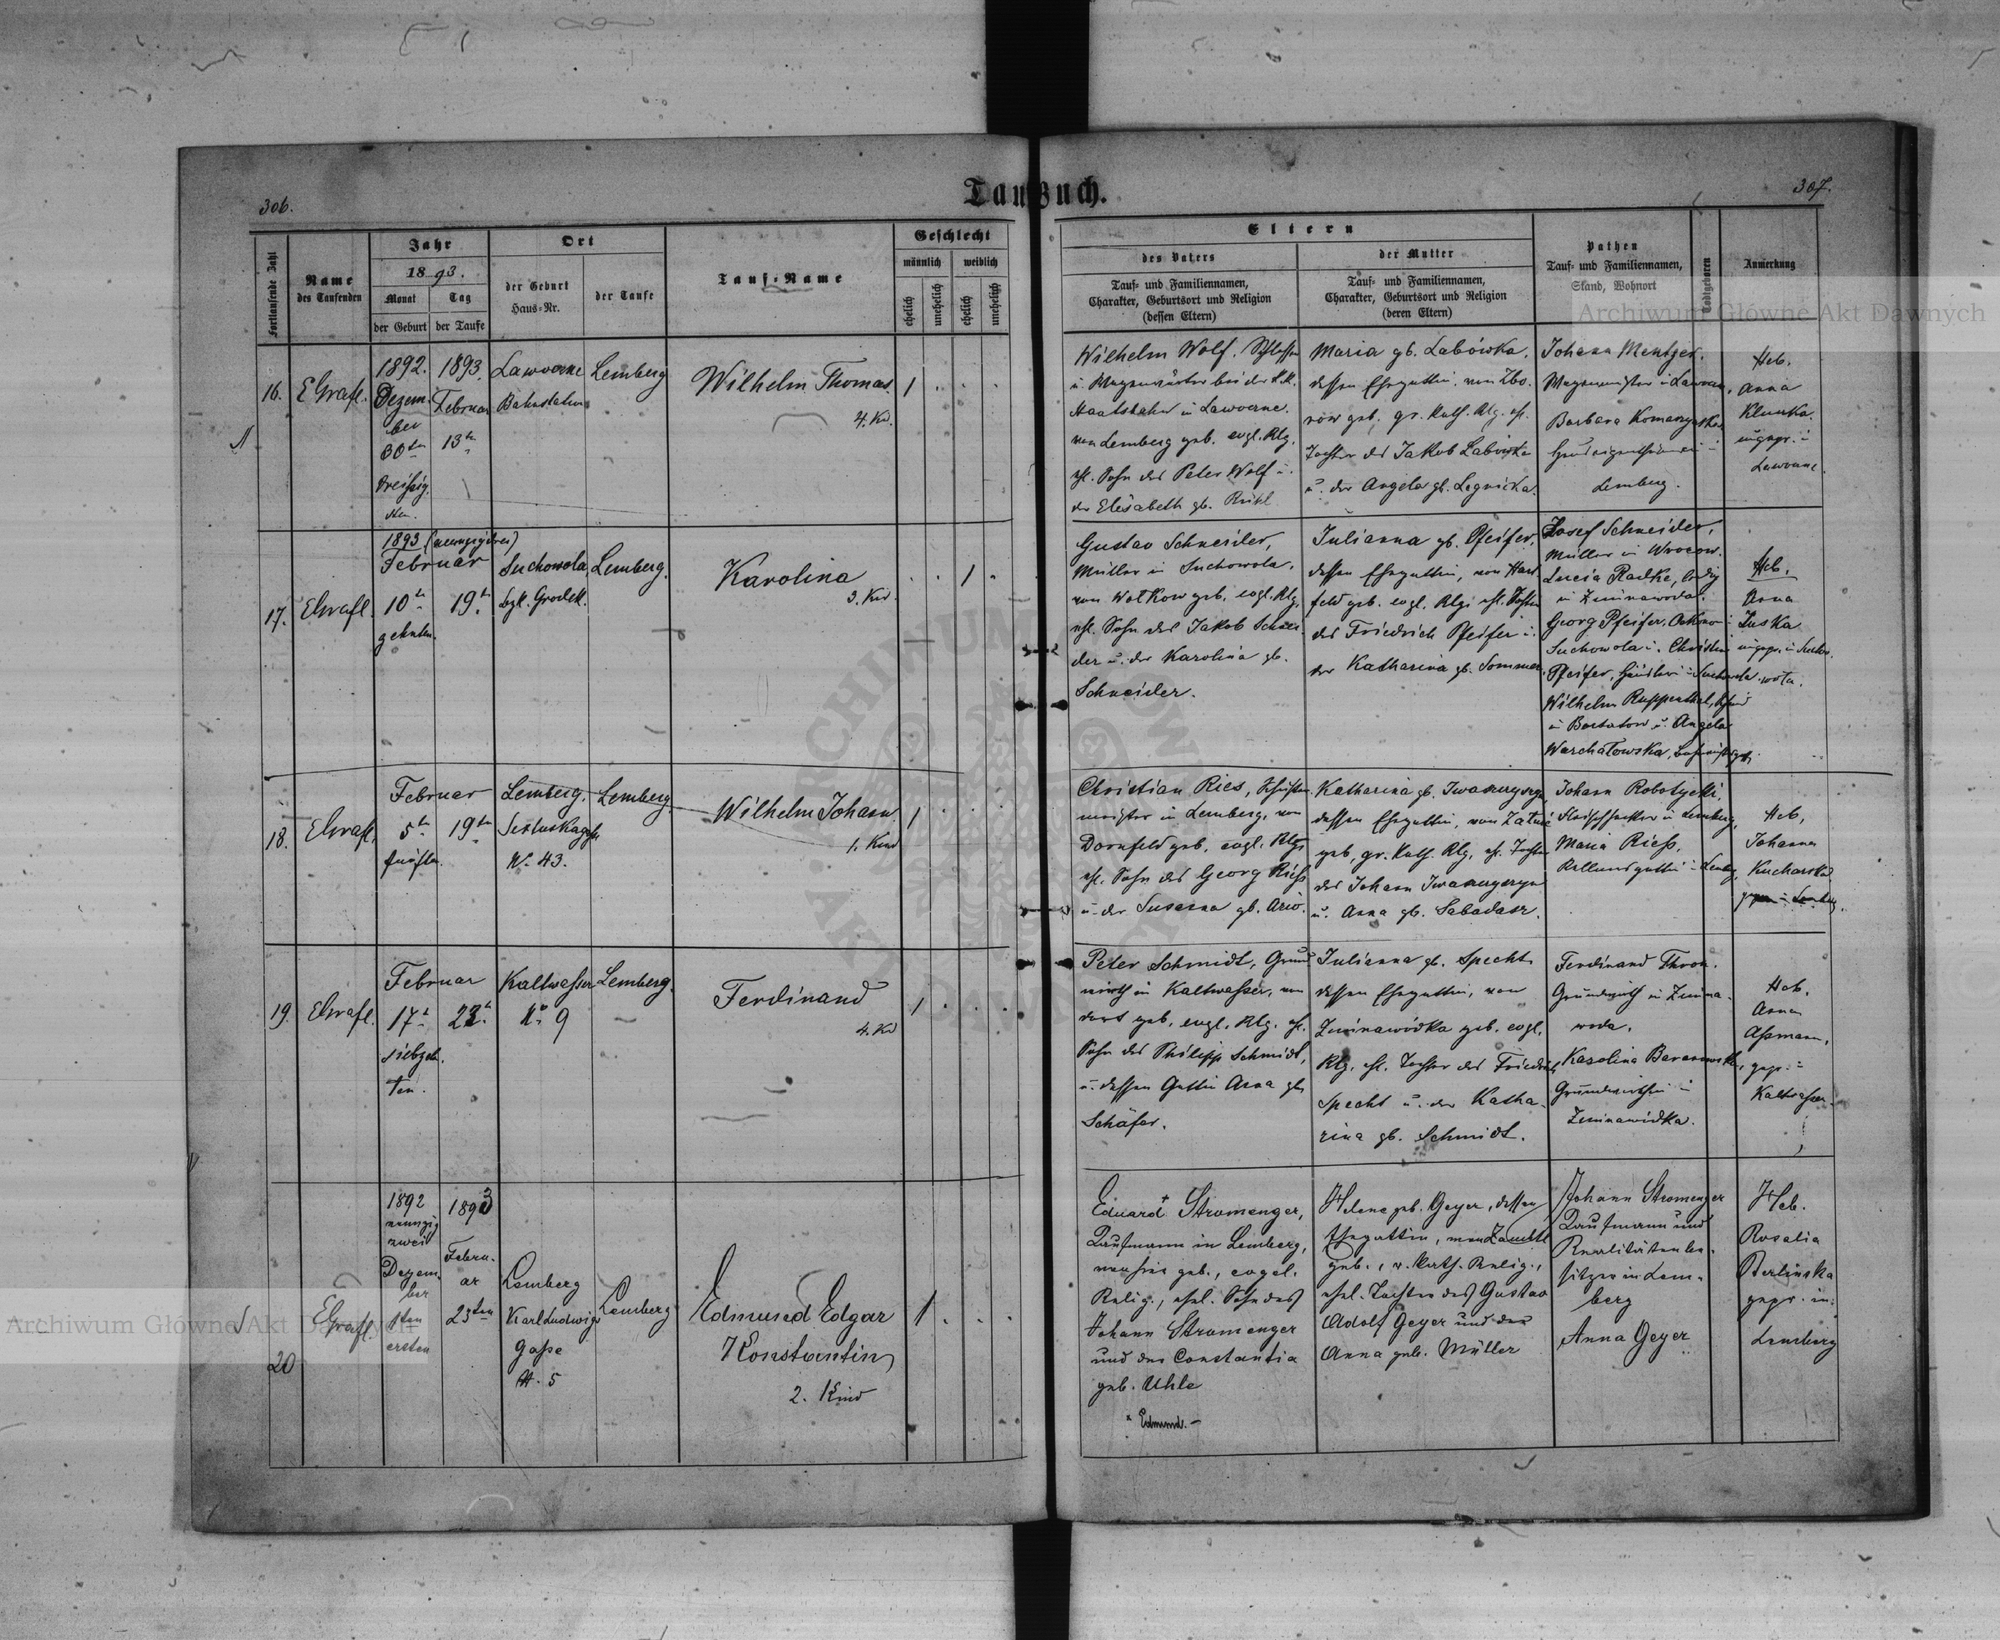 306.
Taufbuch.
307.
Fortlaufende Zahl
Name
des Taufenden
Jahr
1893.
Monat
Tag
der Geburt
der Taufe
Ort
der Geburt
Haus-Nr.
der Taufe
Tauf-Name
Geschlecht
männlich
weiblich
ehelich
unehelich
ehelich
unehelich
Eltern
des Vaters
Tauf- und Familiennamen,
Charakter, Geburtsort und Religion
(dessen Eltern)
der Mutter
Tauf- und Familiennamen,
Charakter, Geburtsort und Religion
(deren Eltern)
Pathen
Tauf- und Familiennamen,
Stand, Wohnort
Todtgeboren
Anmerkung
16.
EGrafl.
1892.
Dezem-
ber
30ten
dreißig-
sten.
1893.
Februar
13te
Lawoczne
Bahnstation
Lemberg
Wilhelm Thomas
4. Kd.
1
Wilhelm Wolf, Schlosser
u. Wagenwärter bei der k.k.
Staatsbahn in Lawoczne.
von Lemberg geb. evgl. Rlg.
ehl. Sohn des Peter Wolf u.
der Elisabeth gb.
Maria gb. Labówka,
dessen Ehegattin, von Zbo-
rów geb. gr. kath. Rlg. ehl.
Tochter des Jakob Labówka
u. der Angela gb. Legnicka.
Johann Mentzer.
Wagenmeister in Lawoczne,
Barbara
Lemberg.
Heb.
Anna
Klunka.
ungepr. in
Lawoczne.
17.
EGrafl.
1893 (neunzigdrei)
Februar
10te
zehnten.
19te
Suchowola,
Bzk. Grodek.
Lemberg.
Karolina
3. Kd.
1
Gustav Schneider,
Müller in Suchowola,
von Wołkow geb. evgl. Rlg.
ehl. Sohn des Jakob Schnei-
der u. der Karolina gb.
Schneider.
Julianna gb. Pfeifer,
dessen Ehegattin, von Hart-
feld geb. evgl. Rlg. ehl. Tochter
des Friedrich Pfeifer u.
der Katharina gb. Sommer.
Josef Schneider,
Müller in Wrocow.
Lucia Radke, ledig
in Zimnawoda.
Georg Pfeifer, Oekonom in
Suchowola u. Christine
Pfeifer, in Suchowola
Wilhelm Rupperthal,
in Bartatow u. Angela
Warchałowska,
Heb.
Anna
Zuska
ungepr. in Sucho-
wola.
18.
EGrafl.
Februar
5te
fünften.
19te
Lemberg.
Sixtuskagasse
No 43.
Lemberg
Wilhelm Johann
1. Kind
1
Christian Ries,
meister in Lemberg, von
Dornfeld geb. evgl. Rlg.
ehl. Sohn des Georg Rieß
u. der Susanna gb.
Katharina gb.
dessen Ehegattin, von
geb. gr. kath. Rlg. ehl. Tochter
des Johann
u. Anna gb. Sabadasz.
Johann Robotycki,
in Lemberg,
Maria Rieß,
in Lemberg
Heb.
Johanna
Kucharska
gepr. in Lemberg.
19.
EGrafl.
Februar
17te
siebzehn-
ten.
22te
Kaltwasser
No 9
Lemberg.
Ferdinand
4. Kd
1
Peter Schmidt, Grund-
wirth in Kaltwasser, von
dort geb. evgl. Rlg. ehl.
Sohn des Philipp Schmidt,
u. dessen Gattin Anna gb.
Schäfer.
Julianna gb. Specht
dessen Ehegattin, von
Zimnawódka geb. evgl.
Rlg. ehl. Tochter des Friedrich
Specht u. der Katha-
rina gb. Schmidt.
Ferdinand Thron.
Grundwirth in Zimna-
woda.
Karolina Baranowska,
Grundwirthin in
Zimnawódka.
Heb.
Anna
Aßmann,
gepr. in
Kaltwasser.
20
EGrafl.
1892
neunzig
zwei
Dezem-
ber
1ten
ersten
1893
Febru-
ar
23ten
Lemberg
Karl Ludwigs
Gaße
N. 5
Lemberg
Edmund Edgar
Konstantin
2. Kind
1
Eduard+ Stromenger,
Kaufmann in Lemberg,
geb., evgel.
Relig., ehel. Sohn des
Johann Stromenger
und der Constantia
geb. Uhle
x Edmund. —
Helene geb. Geyer, dessen
Ehegattin, von
geb., r. kath. Relig.,
ehel. Tochter des Gustav
Adolf Geyer und der
Anna geb. Müller
Johann Stromenger
Kaufmann und
Realitätenbe-
sitzer in Lem-
berg
Anna Geyer
Heb.
Rosalia
Berlinska
gepr. in
Lemberg
Archiwum Główne Akt Dawnych
Archiwum Główne Akt Dawnych